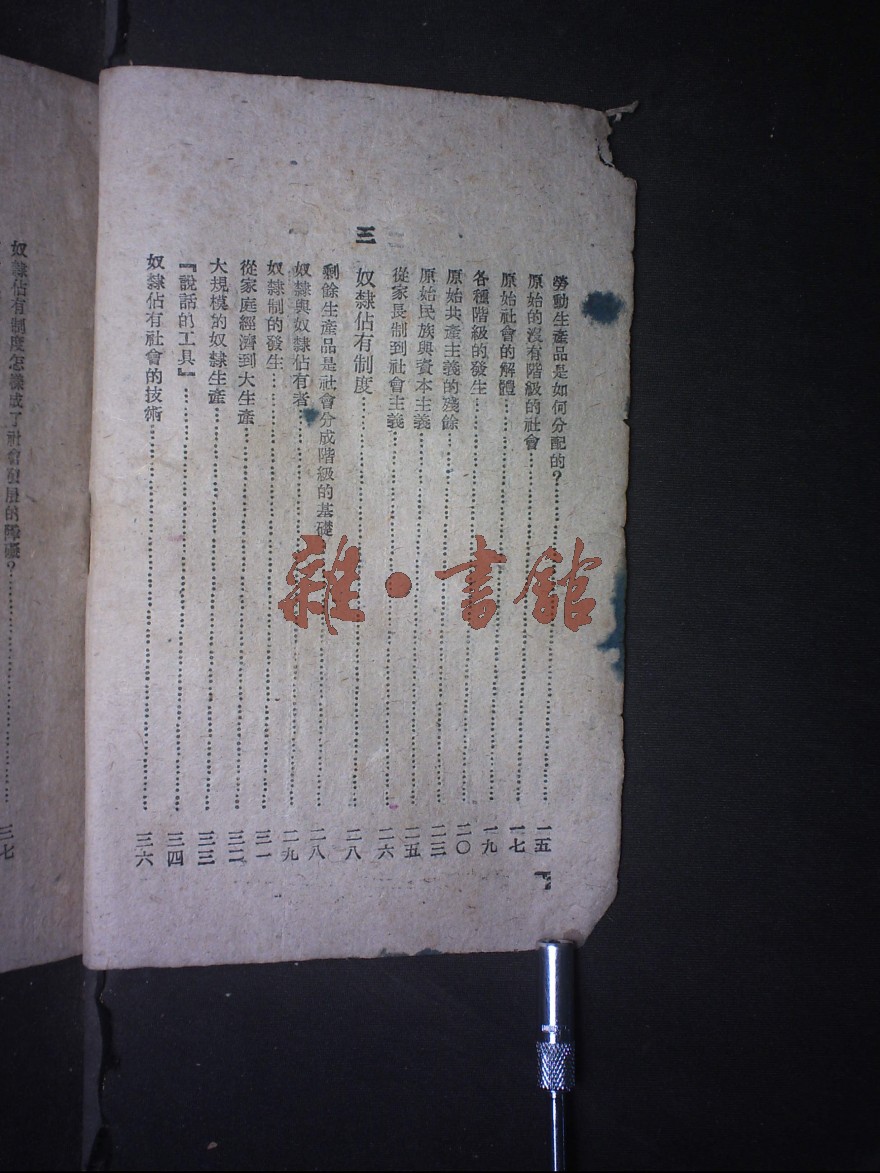 勞動生產品是如何分配的?……一五
原始的沒有階級的社會……一七
原始社會的解體……一九
各種階級的發生……二〇
原始共產主義的殘餘……二三
原始民族與資本主義……二五
從家長制到社會主義……二六
三 奴隸佔有制度……二八
剩餘生產品是社會分成階級的基礎……二八
奴隸與奴隸佔有者……二九
奴隸制的發生……三一
從家庭經濟到大生產……三二
大規模的奴隸生產……三三
『說話的工具』……三四
奴隸佔有社會的技術……三六
奴隸佔有制度怎樣成了社會發展的障礙?……三七
雜·書館